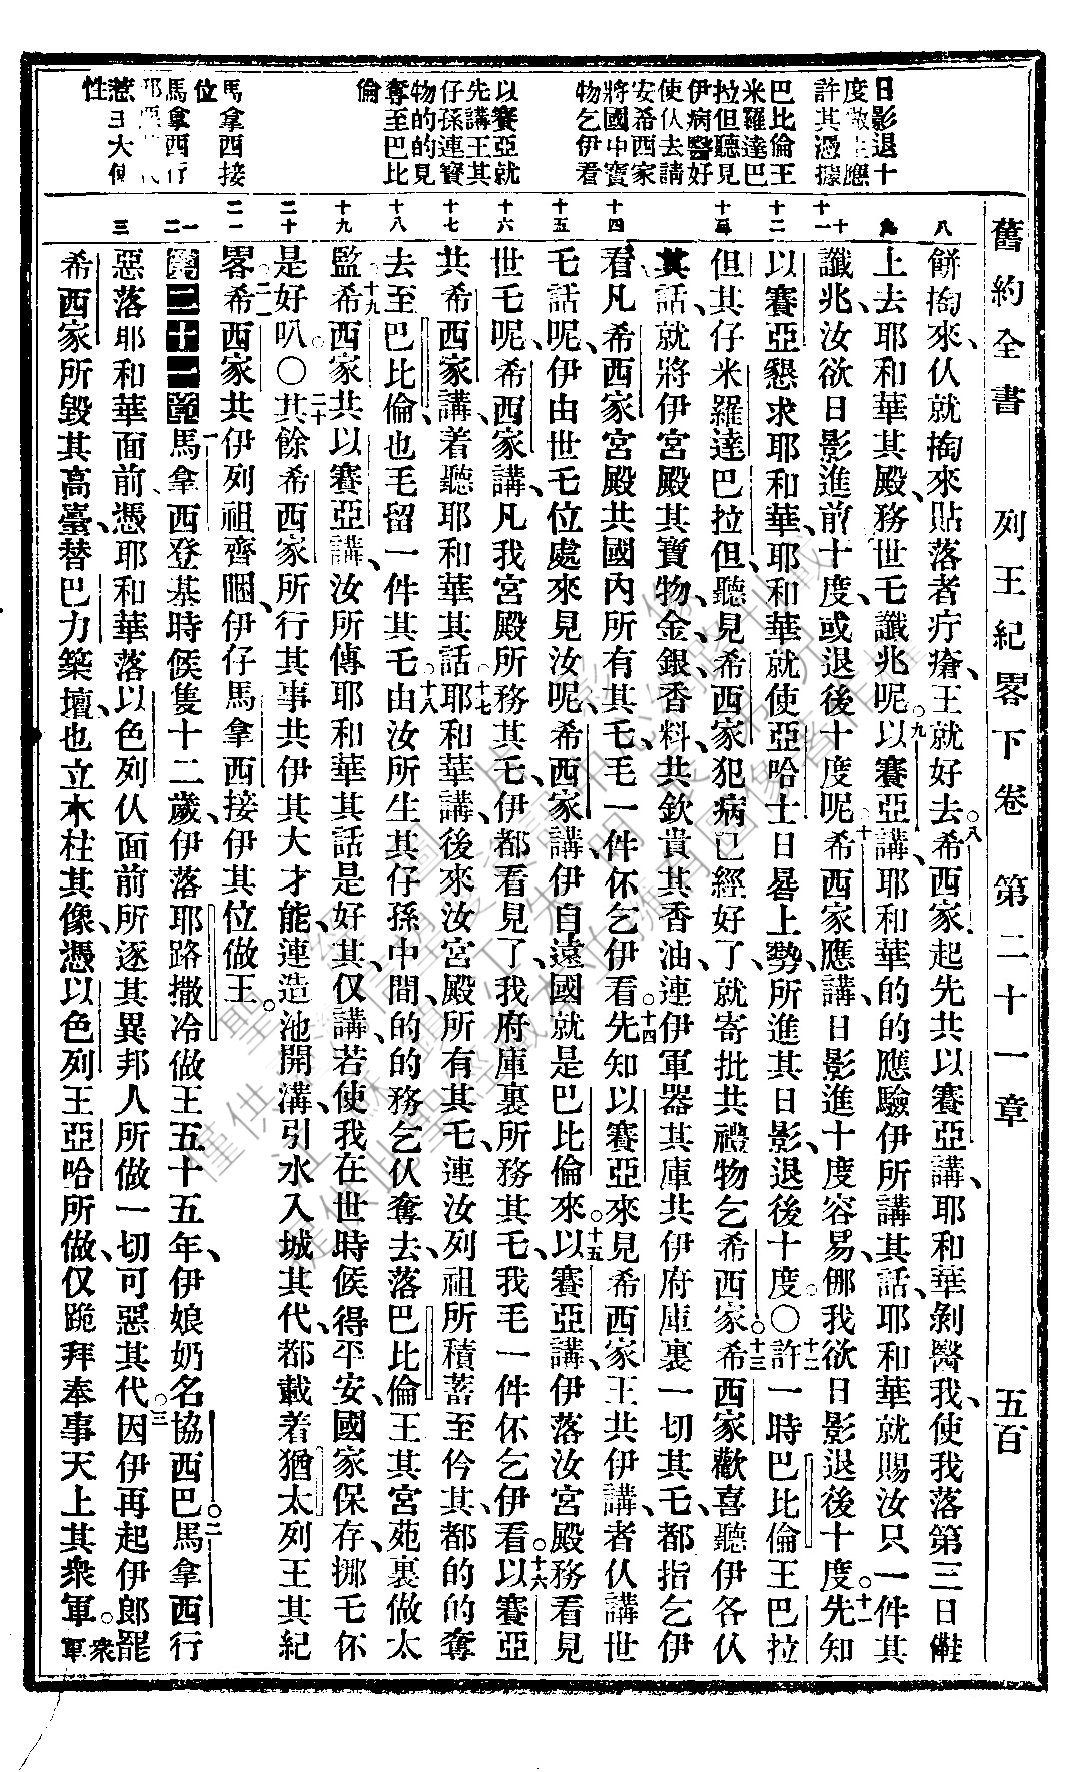 舊約全書 列王紀畧下卷 第二十一章 五百
日影退十
度做主應
許其憑據
巴比倫王
米羅達巴
拉但聽見
伊病醫好
使伙去請
安希西家
將國中寶
物乞伊看
以賽亞就
先講王其
仔孫連寶
物的的見
奪至巴比
倫
馬拿西接
位
馬拿西仔
性
八
十
十一
十二
十三
十四
十五
十六
十七
十八
十九
二十
二一
一二
三
餅搯來、伙就搯來貼落者疔瘡、王就好去。八希西家起先共以賽亞講、耶和華剝醫我、使我落第三日
上去耶和華其殿、務世乇讖兆呢。九以賽亞講、耶和華的的應驗伊所講其話、耶和華就賜汝只一件其
讖兆、汝欲日影進前十度、或退後十度呢。十希西家應講、日影進十度容易、㑚我欲日影退後十度。十一先知
以賽亞懇求耶和華、耶和華就使亞哈士日晷上勢、所進其日影、退後十度。〇十二許一時巴比倫王巴拉
但其仔米羅達巴拉但、聽見希西家犯病已經好了、就寄批共禮物乞希西家。十三希西家歡喜聽伊各伙
其話、就將伊宮殿其寶物、金、銀、香料、共欽貴其香油、連伊軍器其庫共伊府庫裏一切其乇、都指乞伊
看、凡希西家宮殿共國內所有其乇、毛一件伓乞伊看。十四先知以賽亞來見希西家王共伊講、者伙講世
乇話呢、伊由世乇位處來見汝呢、希西家講、伊自遠國就是巴比倫來。十五以賽亞講、伊落汝宮殿務看見
世乇呢、希西家講、凡我宮殿所務其乇、伊都看見了、我府庫裏所務其乇、我毛一件伓乞伊看。十六以賽亞
共希西家講、着聽耶和華其話。十七耶和華講、後來汝宮殿所有其乇、連汝列祖所積蓄至仱其、都的的奪
去至巴比倫、也毛留一件其乇。十八由汝所生其仔孫中間、的的務乞伙奪去、落巴比倫王其宮苑裏做太
監。十九希西家共以賽亞講、汝所傳耶和華其話是好其、仅講、若使我在世時候得平安、國家保存、挪乇伓
是好叭。〇二十其餘希西家所行其事共伊其大才能、連造池開溝、引水入城其代、都載着猶太列王其紀
畧。二一希西家共伊列祖齊睏、伊仔馬拿西接伊其位做王。
第二十一章 一馬拿西登基時候隻十二歲、伊落耶路撒冷做王五十五年、伊娘奶名協西巴。二馬拿西行
惡落耶和華面前、憑耶和華落以色列伙面前所逐其異邦人所做一切可惡其代。三因伊再起伊郎罷
希西家所毀其高臺、替巴力築壇、也立木柱其像、憑以色列王亞哈所做、仅跪拜奉事天上其衆軍。衆
軍